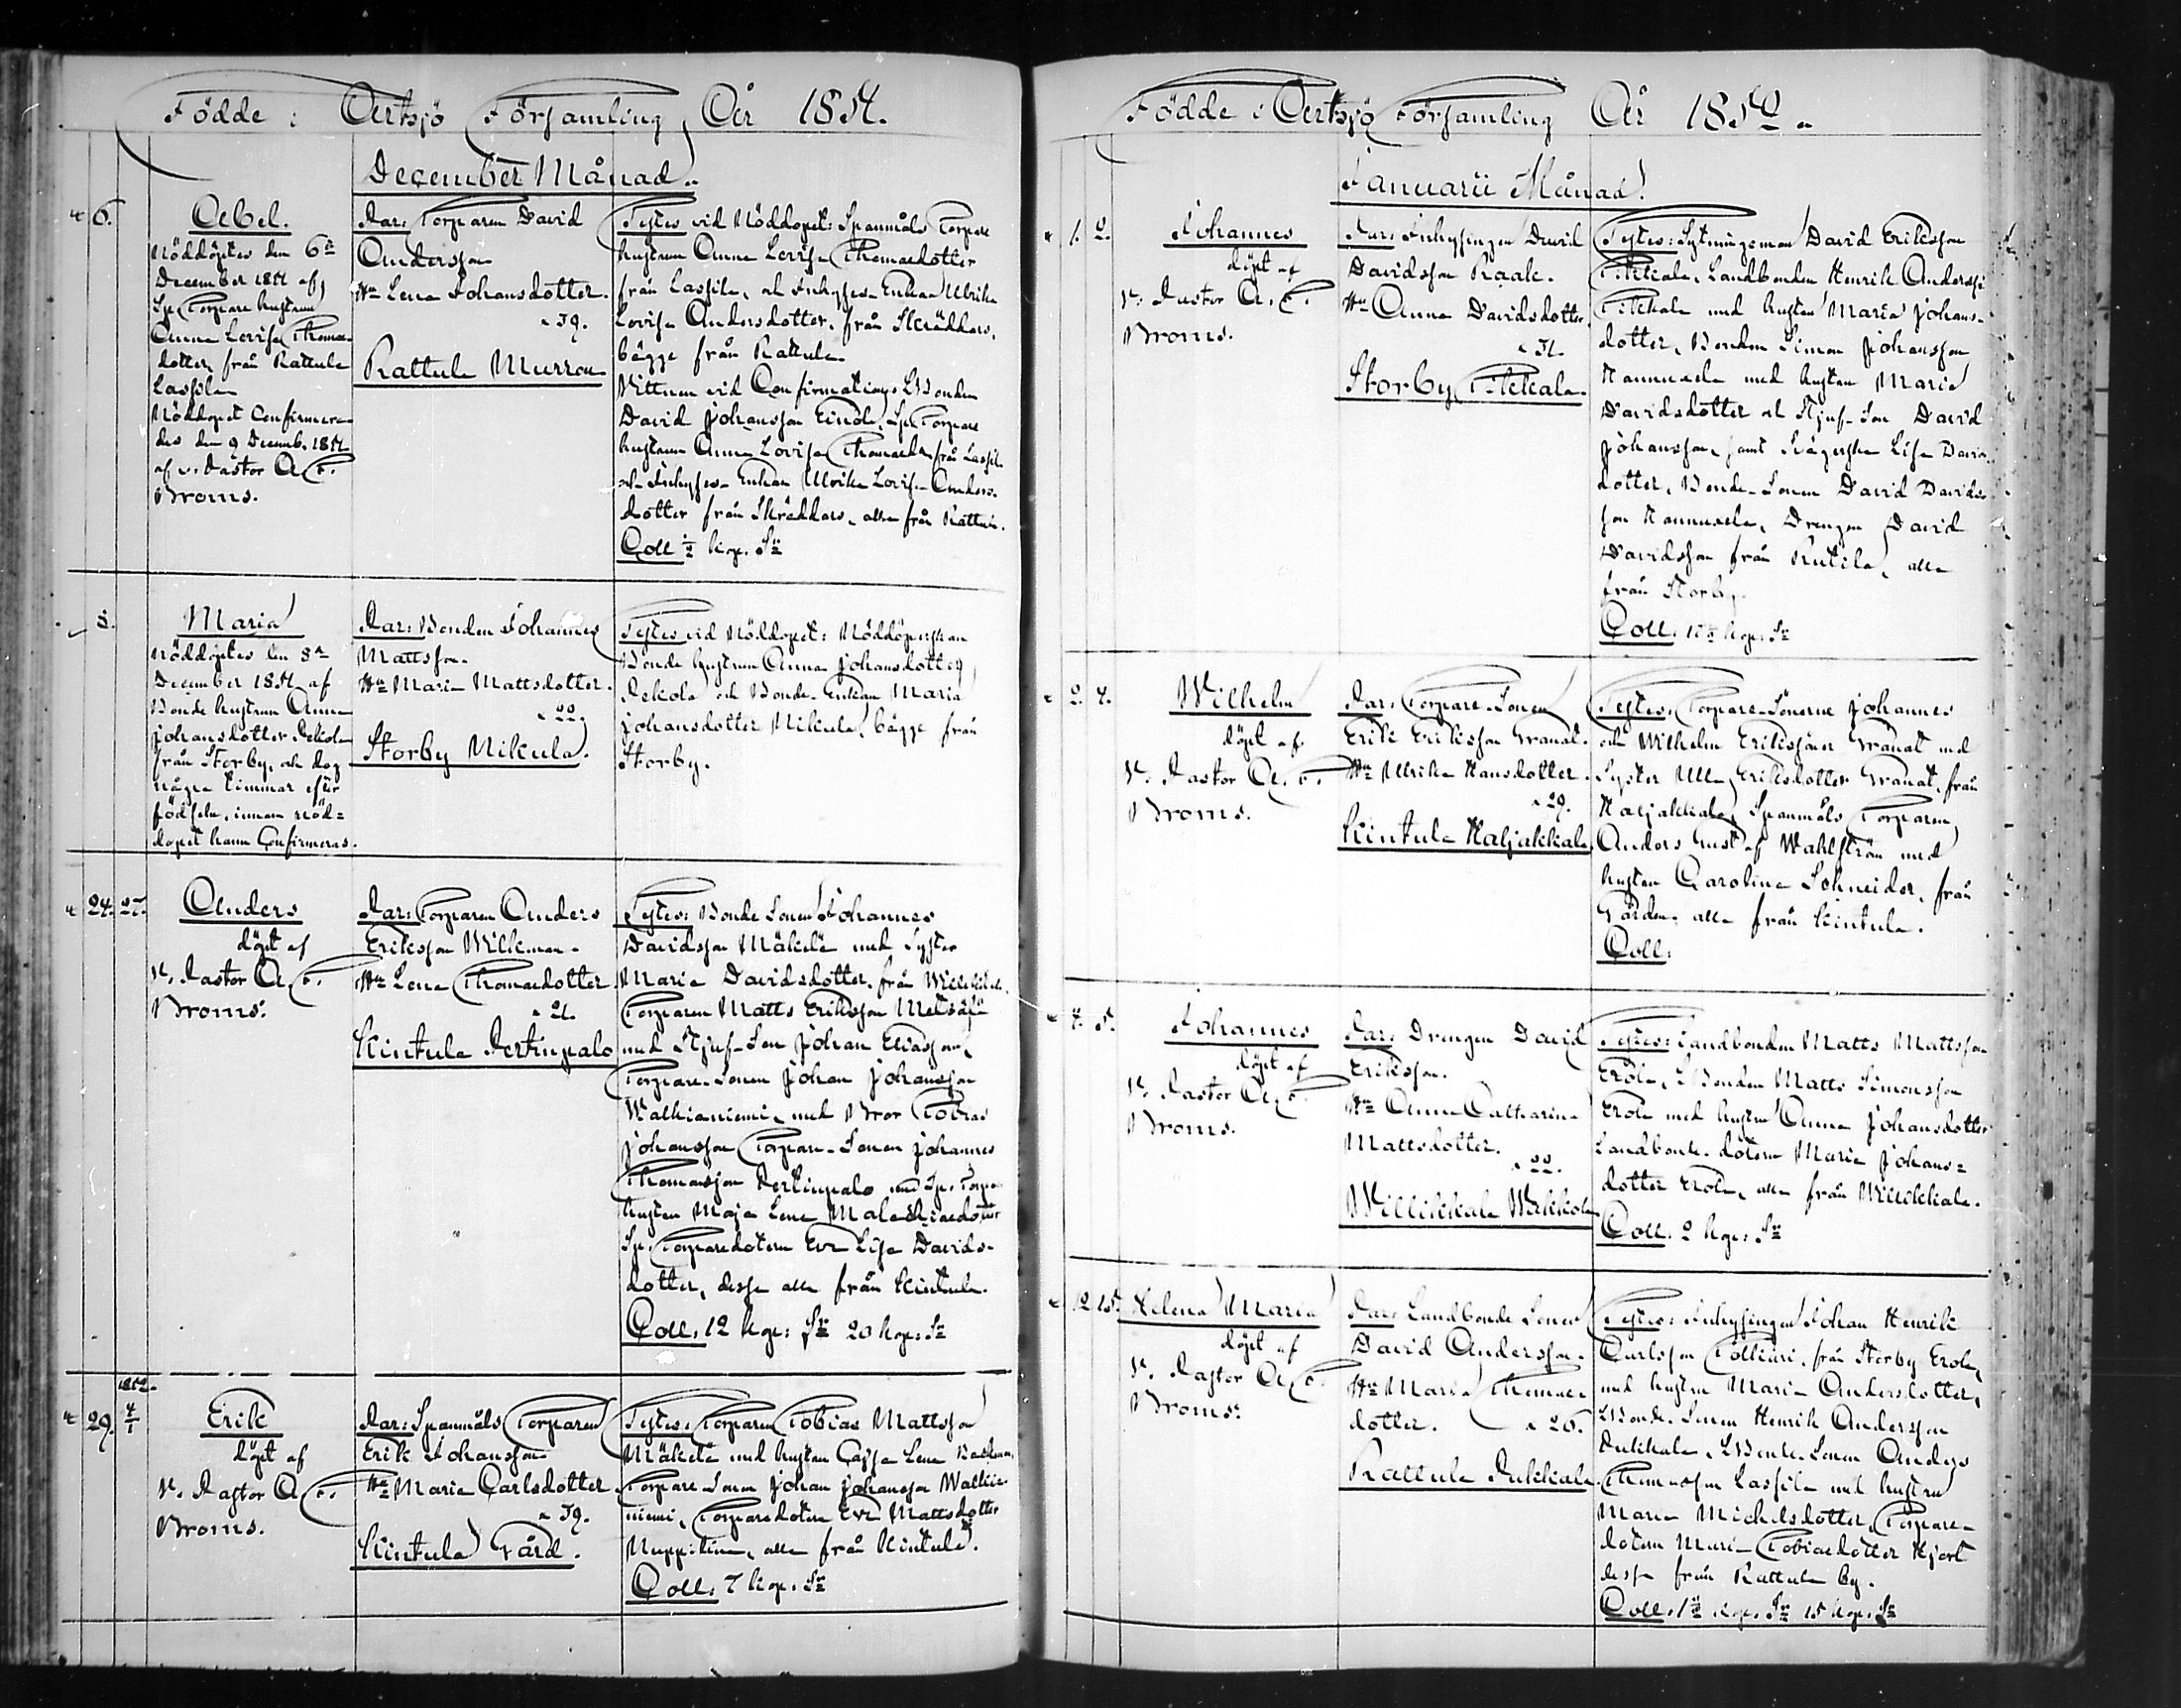 Födde i Artsjö Församling År 1851.
December Månad.
6.
Abel.
Nöddöptes den 6te
December 1851 af
Sp. Torpare hustrun
Anna Lovisa Thomae-
dotter från Rattula
Lassila
Nöddopet Confirmera-
des den 9 Decemb. 1851
af v. Pastor A. F.
Broms.
Par: Torparen David
Andersson
Hu Lena Johansdotter.
39.
Rattula Murron
Testes vid Nöddopet: Spanmåls Torpare
hustrun Anna Lovisa Thomaedotter
från Lassila, och Inhyses Enkan Ulrika
Lovisa Andersdotter, från Skräddars,
bägge från Rattula
Vittnen vid Confirmation: Bonden
David Johansson Einola, Sp. Torpare
hustrun Anna Lovisa Thomaedr från Lassila
och Inhyses Enkan Ulrika Lovisa Anders-
dotter från Skräddars, alla från Rattula.
Coll kop. Sr
8.
Maria
Nöddöptes den 8de
December 1851 af
Bonde hustrun Anna
Johansdotter Pekola
från Storby, och dog
några timmar efter
födseln, innan nöd=
dopet hann Confirmeras.
Par: Bonden Johannes
Mattsson.
Hu Maria Mattsdotter.
22.
Storby Nikula.
Testes vid Nöddopet: Nöddöperskan
Bonde hustrun Anna Johansdotter
Pekola och Bonde-Enkan Maria
Johansdotter Nikula, bägge från
Storby.
24. 27.
Anders
döpt af
V. Pastor A. F.
Broms.
Par: Torparen Anders
Eriksson Wilkman.
Hu Lena Thomaedotter.
21.
Kintula Pertinpalo
Testes: Bonde Sonen Johannes
Davidsson Mäkelä med Syster
Maria Davidsdotter, från Willikkala
Torparen Matts Eriksson Metsäjä
med Stjuf-Son Johan Eliasson,
Torpare-Sonen Johan Johansson
Walkianiemi, med Bror Tobias
Johansson Torpare-Sonen Johannes
Thomasson Pertinpalo med Sp. Torpa-
hustru Maja Lena Malachiaedotter
Sp. Torparedotern Eva Lisa Davids-
dotter, dessa alla från Kintula.
Coll. 12 kop: Sr 20 kop: Sr
1852.
29. 4/1
Erik
döpt af
V. Pastor A. F.
Broms.
Par: Spanmåls Torparen
Erik Johansson
Hu Maria Carlsdotter.
39.
Kintula Gård.
Testes: Torparen Tobias Mattsson
Mäkelä med hustru Cajsa Lena
Torpare-Sonen Johan Johansson Walkia-
niemi, Torparedotern Eva Mattsdotter
alla från Kintula.
Coll: 7 kop. Sr
Födde i Artsjö Församling År 1852.
Januarii Månad.
1. 2.
Johannes
döpt af
V: Pastor A. F.
Broms.
Par: Inhysingen David
Davidsson Raak.
Hu Anna Davidsdotter.
31.
Storby Pitkkala.
Testes: Sytningsman David Eriksson
Pitkkala, Landbonden Henrik Andersson
Pitkkala med hustru Maria Johans-
dotter, Bonden Simon Johansson
Hannuxela med hustru Maria
Davidsdotter och Stjuf-Son David
Johansson, samt Lisa Davids-
dotter, Bonde-Sonen David Davids-
son Hannuxela, Drengen David
Davidsson från Rutila, alla
från Storby.
Coll. kop. Sr
2. 4.
Wilhelm
döpt af
V. Pastor A. F.
Broms.
Par: Torpare-Sonen
Erik Eriksson Granat.
Hu Ulrika Hansdotter.
29.
Kintula Haljakkala
Testes. Torpare-Sönerne Johannes
och Wilhelm Erikssöner Granat med
Syster Ulla Eriksdotter Granat, från
Haljakkala, Spanmåls Torparen
Anders Gustaf Wahlström med
hustru Carolina Schneider, från
Gården, alla från Kintula.
Coll:
4. 5.
Johannes
döpt af
V. Pastor A. F.
Broms.
Par: Drengen David
Eriksson.
Hu Anna Catharina
Mattsdotter.
22.
Willikkala Wekkola
Testes: Landbonden Matts Mattsson
Erola, Bonden Matts Simonsson
Erola med hustru Anna Johansdotter
Landbonde-dotern Maria Johans=
dotter Erola, alla från Willikkala.
Coll. 2 kop: Sr
12. 15.
Helena Maria
döpt af
V. Pastor A. F.
Broms.
Par: Landbonde Sonen
David Andersson.
Hu Maria Thomae-
dotter. 26.
Rattula Pukkala
Testes: Inhysingen Johan Henrik
Carlsson från Storby Erola,
med hustru Maria Andersdotter,
Bonde-Sonen Henrik Andersson
Pukkala, Bonde-Sonen Anders
Thomasson Lassila med hustru
Maria Michelsdotter, Torpare-
dotern Maria Tobiaedotter Hjort
dessa från Rattula by.
Coll. kop. Sr 15 kop. Sr